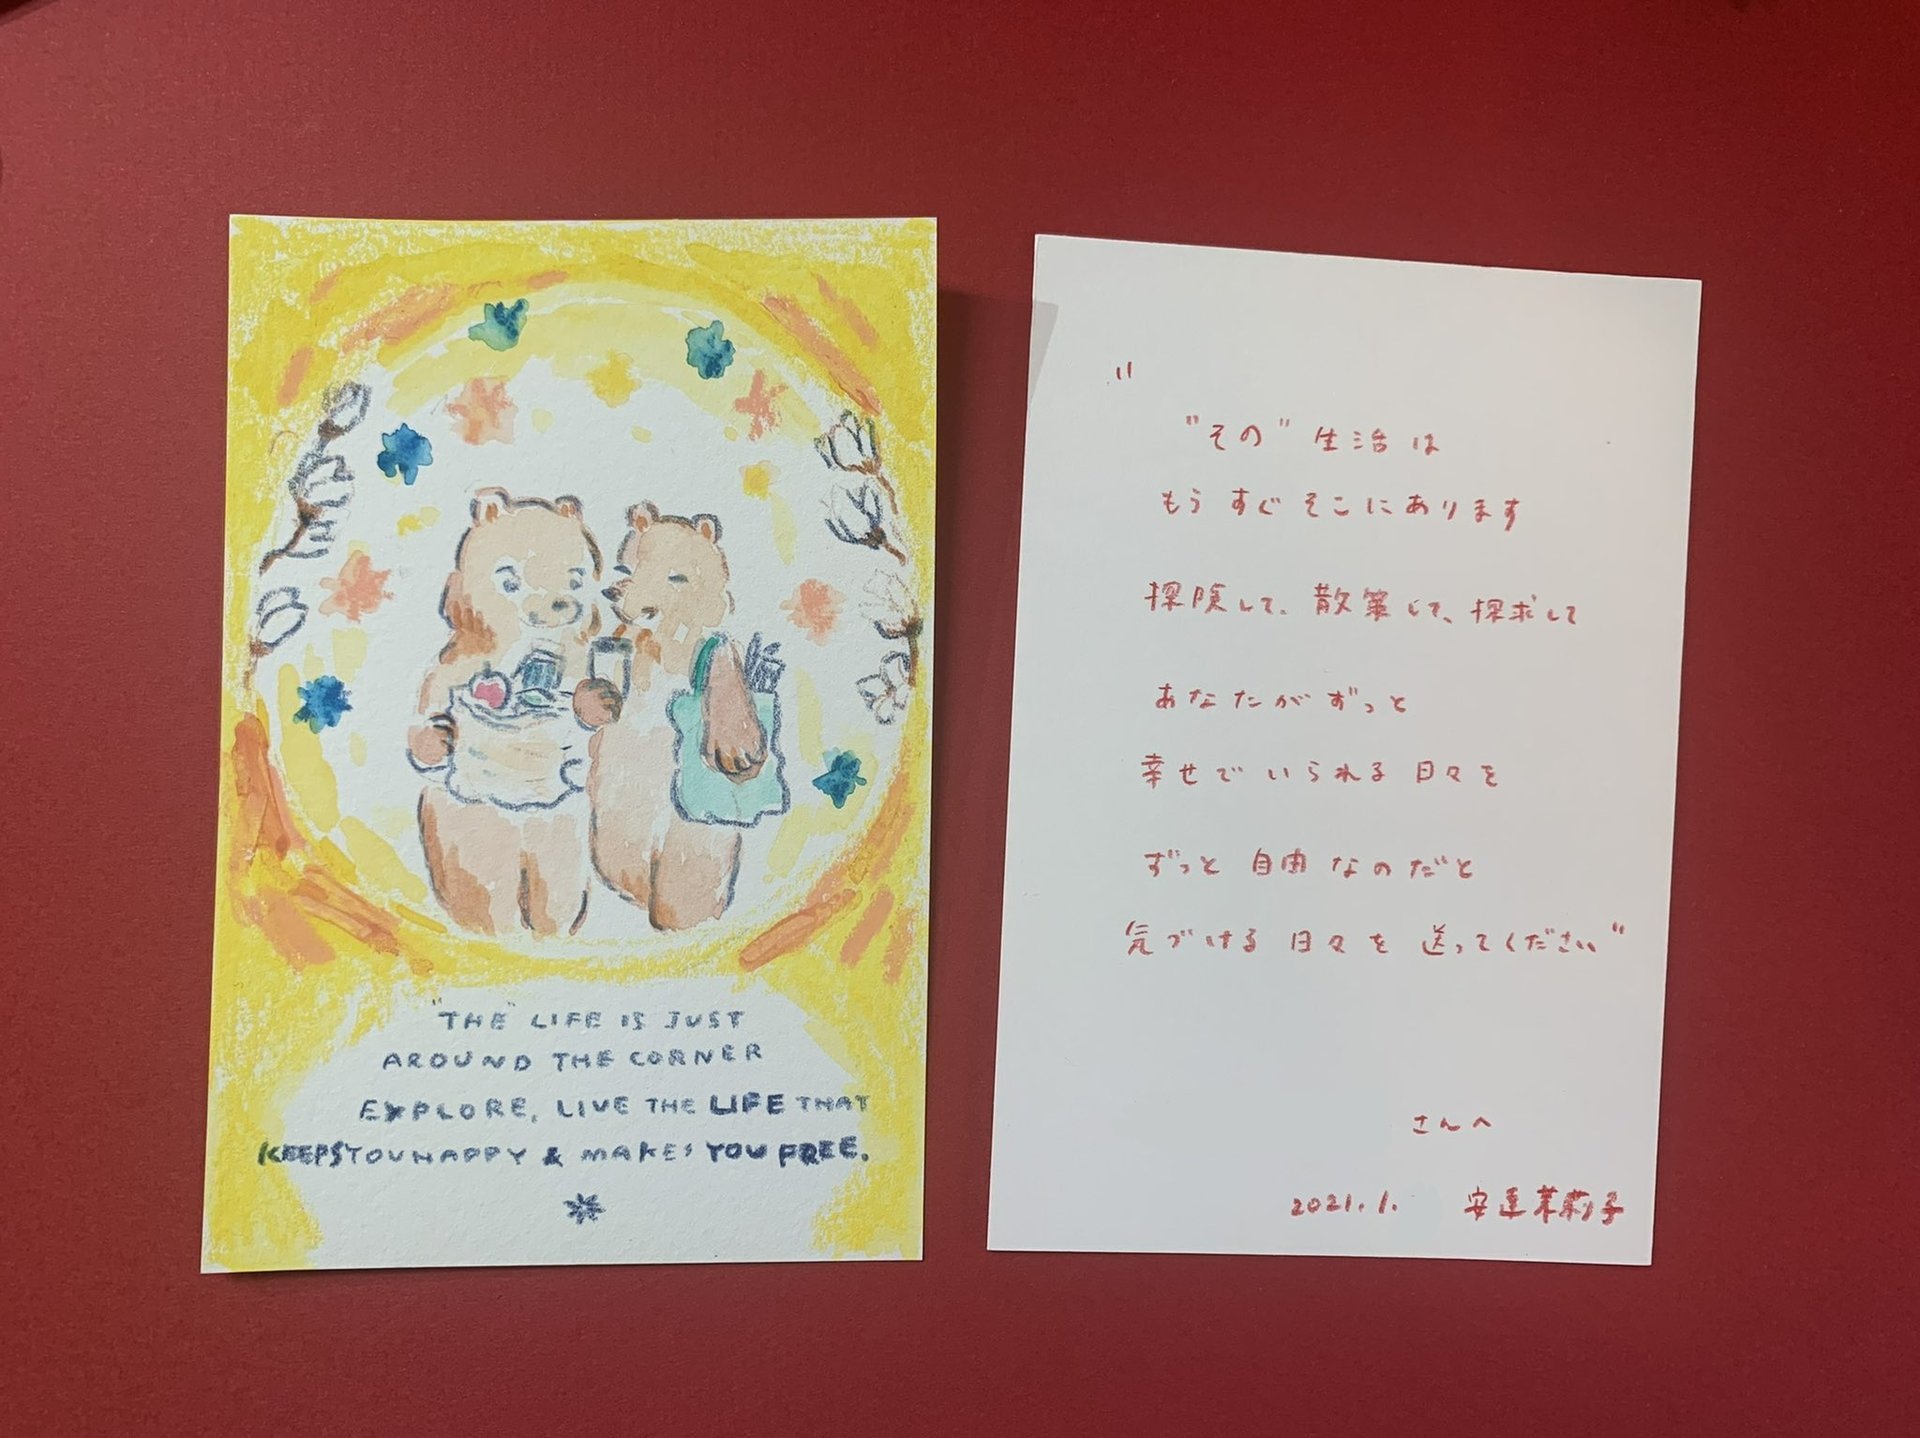 "THE" LIFE IS JUST
AROUND THE CORNER
EXPLORE, LIVE THE LIFE THAT
KEEPS YOU HAPPY & MAKES YOU FREE.
"
"その" 生活は
もうすぐそこにあります
探険して、散策して、探求して
あなたがずっと
幸せでいられる日々を
ずっと自由なのだと
気づける日々を送ってください"
さんへ
2021.1. 安達茉莉子